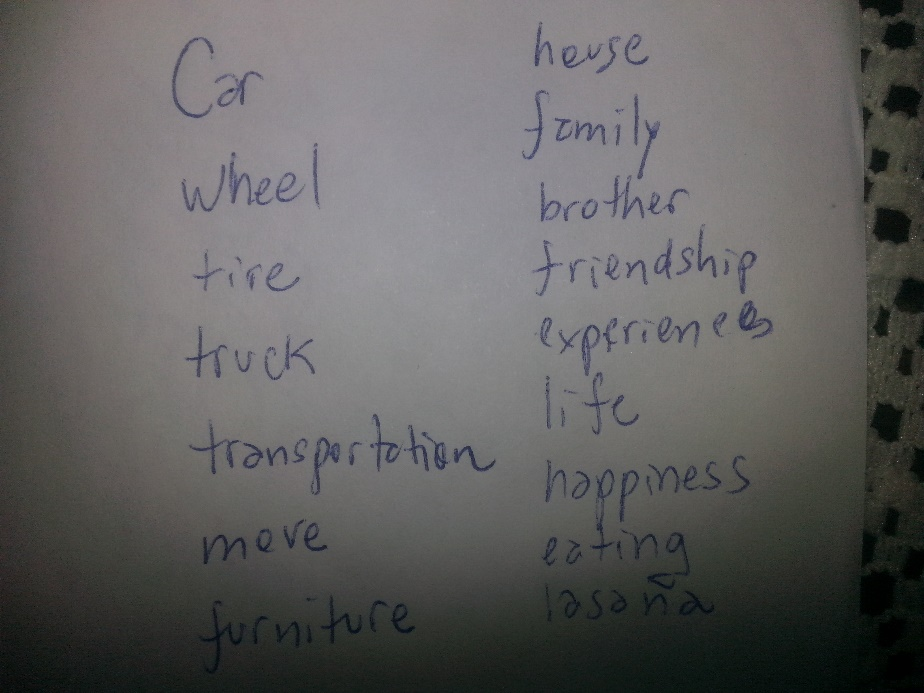 Car
wheel
tire
truck
transportation
move
furniture
house
family
brother
friendship
experiences
life
happiness
eating
lasaña